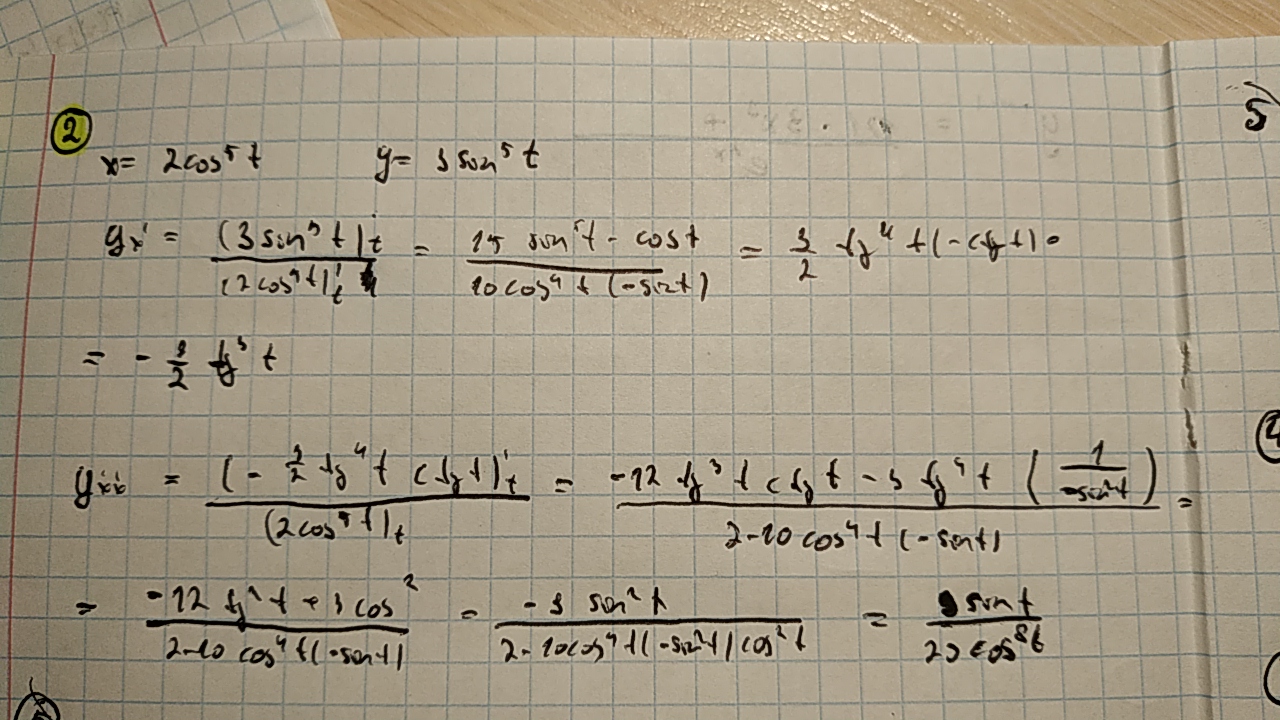 ②
x = 2cos⁵t   y = 3sin⁵t
y'ₓ = (3 sin⁵ t)'ₜ / (2cos⁵ t)'ₜ = 15 sin⁴t · cos t / 10 cos⁴ t (-sin t) = 3/2 tg⁴ t (-ctg t) =
= - 3/2 tg³ t
= (- 3/2 tg⁴ t ctg t)'ₜ / (2cos⁵ t)ₜ = -12 tg³ t ctg t - 3 tg⁴ t ( 1 / -sin²t ) / 2·10 cos⁴ t (-sin t) =
= / 2·10 cos⁴ t (-sin t) = -9 sin² t / 2·10cos⁴ t (-sin t) cos² t = 9 sin t /